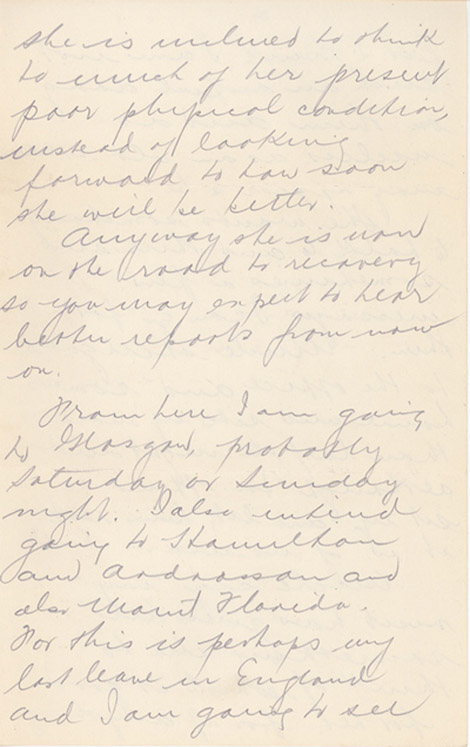 she is inclined to think
to much of her present
poor physical condition,
instead of looking
forward to how soon
she will be better.
Anyway she is now
on the road to recovery
so you may expect to hear
better reports from now
on.
From here I am going
to Glasgow, probably
Saturday or Sunday
night. I also intend
going to Hamilton
and Ardrossan and
also Mount Florida.
For this is perhaps my
last leave in England
and I am going to see